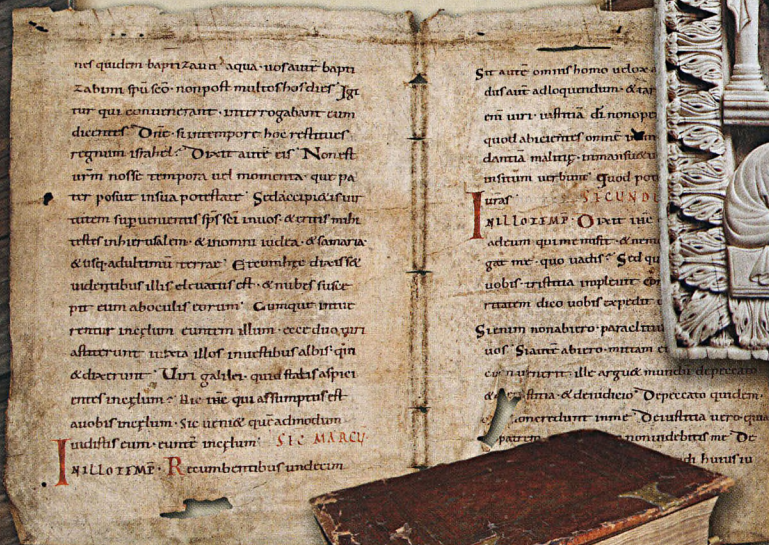 nes quidem baptizauit aqua · uos autē bapti
zabimini spū sc̄o · non post multos hos dies Igi
tur qui conuenerant · interrogabant eum
dicentes Dn̄e · si in tempore hoc restitues
regnum israhel · Dixit autē eis Non est
urm̄ nosse tempora uel momenta · que pa
ter posuit in sua potestate Sed accipietis uir
tutem supuenientis sps̄ sc̄i in uos · & eritis mihi
testes in hierusalem · & in omni iudea · & samaria
& usq; ad ultimū terrae Et cum hec dixisset
uidentibus illis eleuatus est · & nubes susce
pit eum ab oculis eorum Cumque intue
rentur in celum euntem illum · ecce duo uiri
astiterunt iuxta illos in uestibus albis · qui
& dixerunt Viri galilei · quid statis aspici
entes in celum Hic ihc qui assumptus est
a uobis in celum · sic ueniet quē admodum
uidistis eum · euntē in celum SEC MARCU
IN ILLO TEMP · Recumbentibus undecim
Sit autē omnis homo uelox a
dus autē ad loquendum · & tar
enī uiri · iustitia di non ope
quod abicientes omnē
dantia malitię · in mansuetu
insitum uerbum Quod pot
uras SECUNDU
IN ILLO TEMP · Dixit ihc
ad eum qui me misit · & nemo
gat me · quo uadis Sed qu
uobis · tristitia impleuit co
ritatem dico uobis expedit u
Si enim non abiero · paraclitu
uos Si autē abiero · mittam e
cū uenerit · ille arguet mundū de peccato
& de iustitia · & de iudicio De peccato quidem ·
non crediderunt in me De iustitia uero · quia
patrem non uidebitis me De
di huius iu